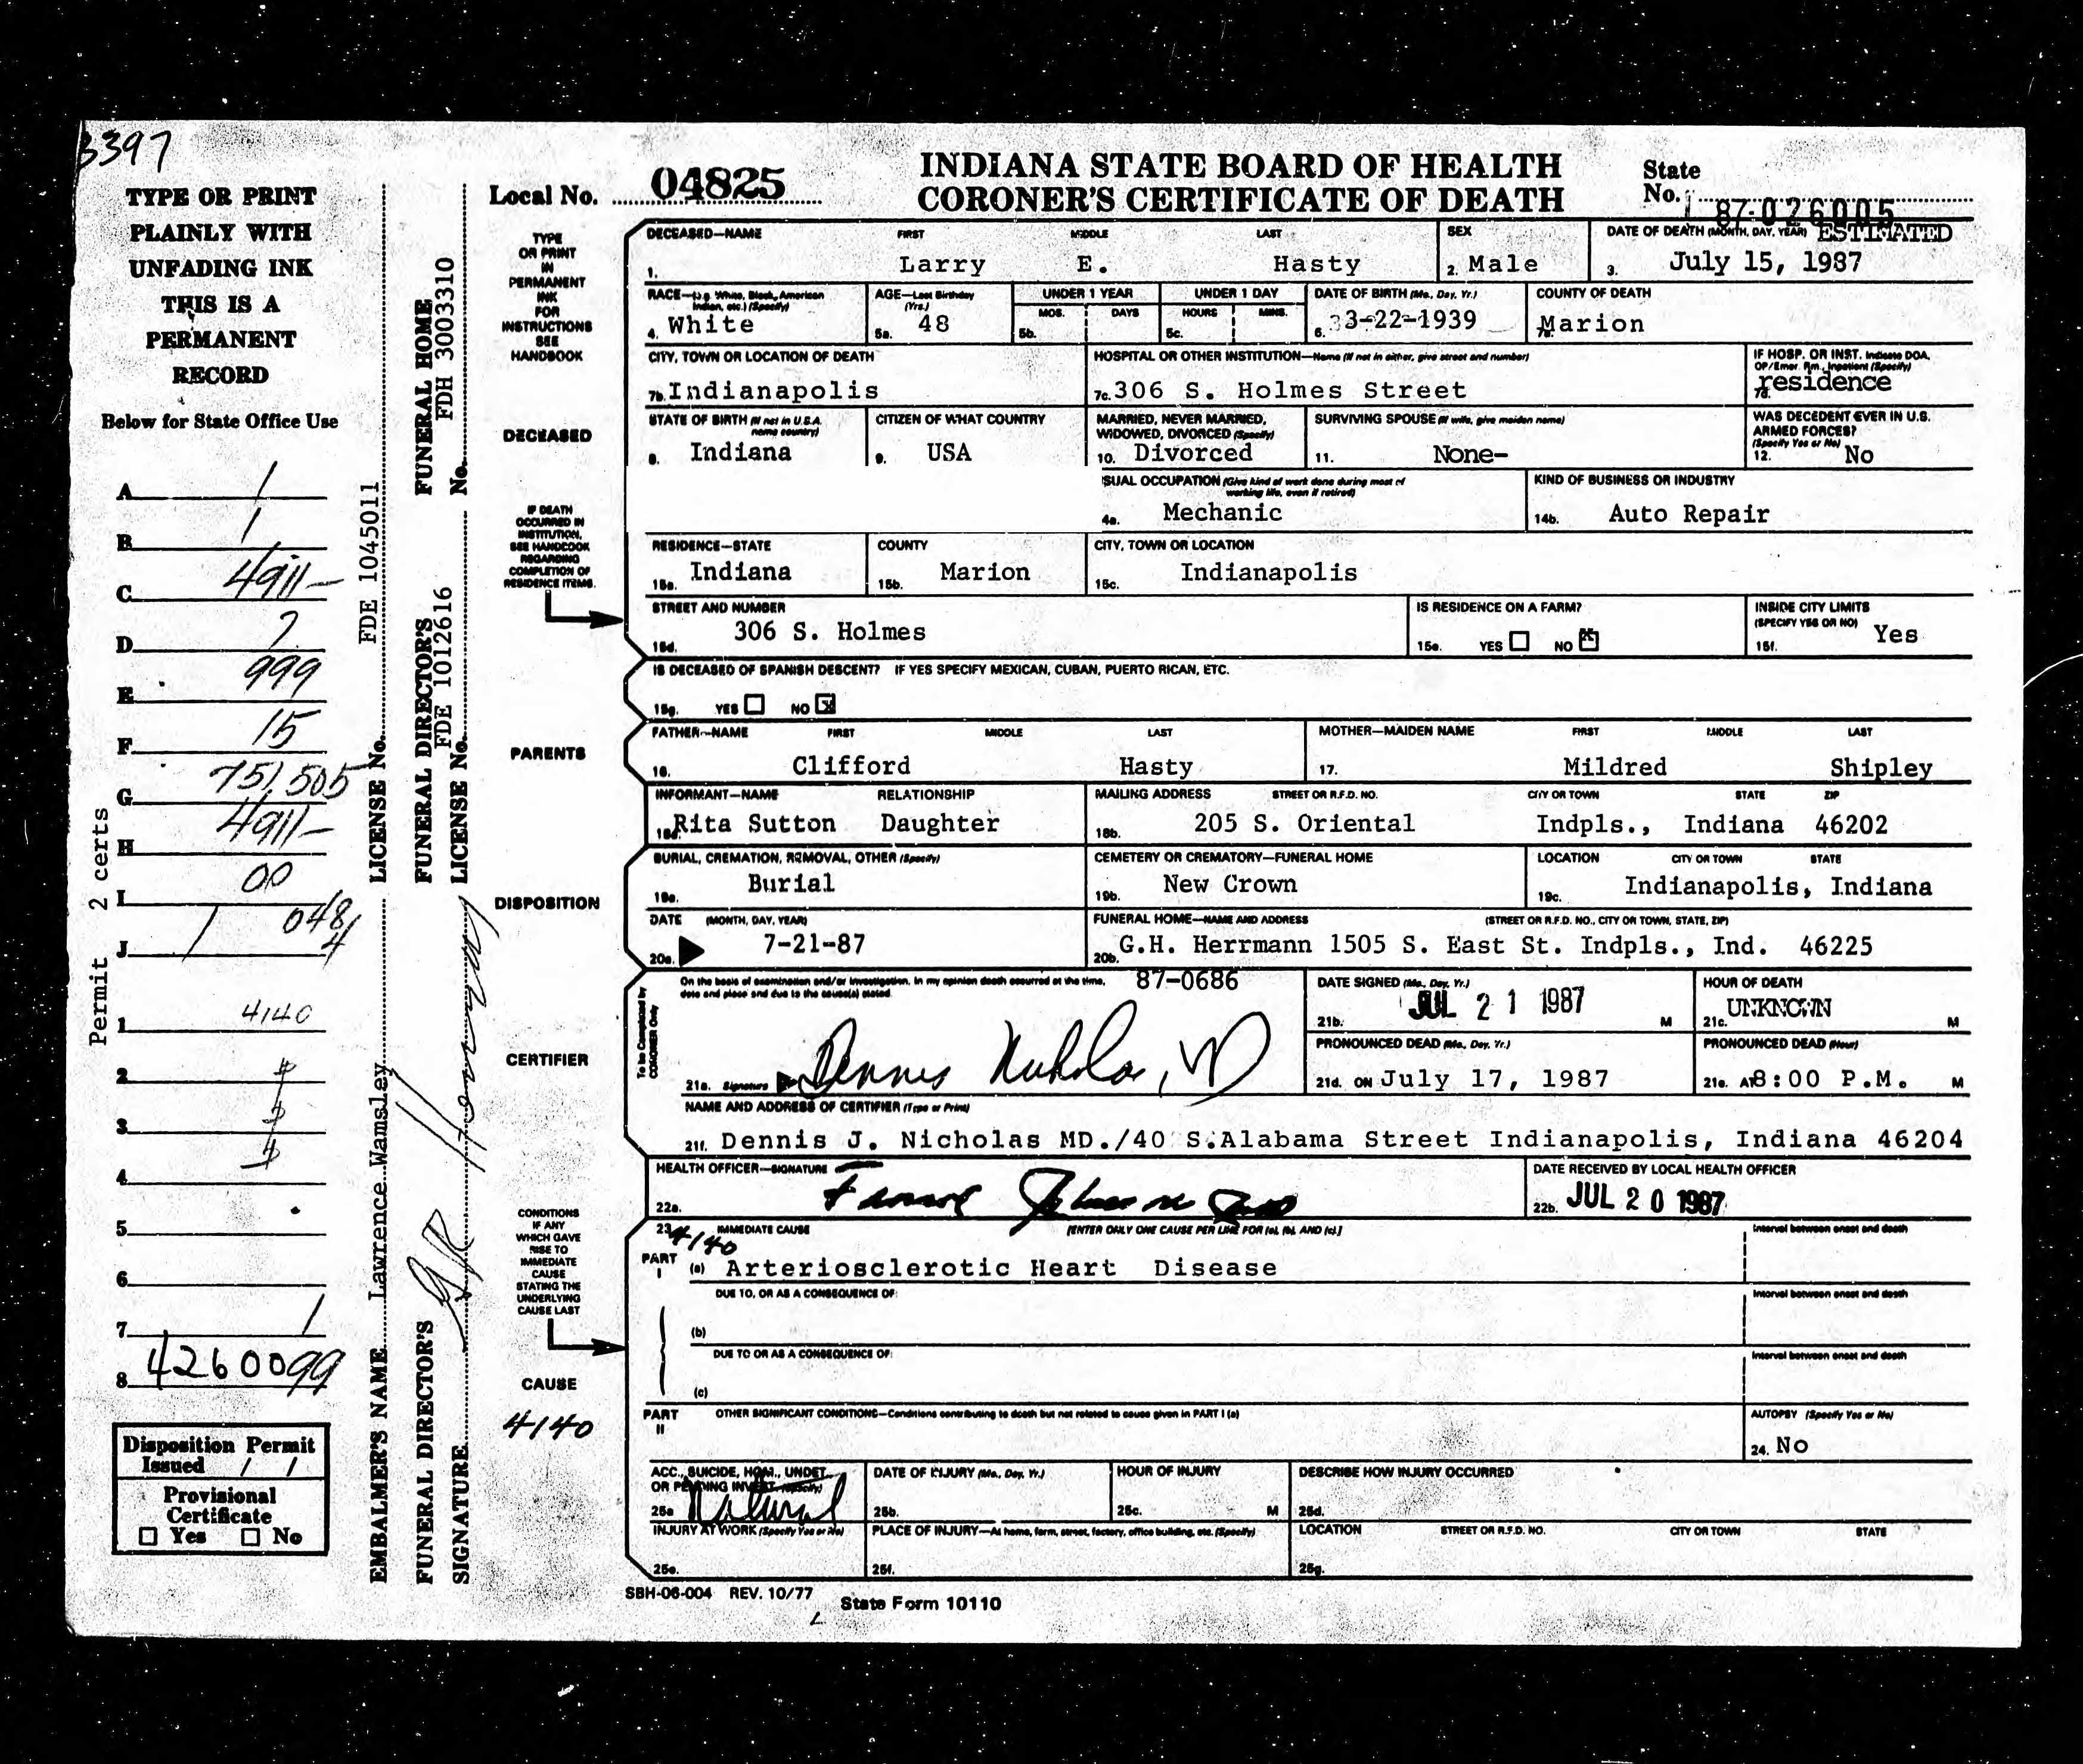 3397
TYPE OR PRINT
PLAINLY WITH
UNFADING INK
THIS IS A
PERMANENT
RECORD
Below for State Office Use
A 1
B 1
C 4911-
D 2
E 999
F 15
G 751,505
H 4911-
I 00
J 1 048
4
1 4140
2
3
4
5
6
7 1
8 4260099
Disposition Permit
Issued / /
Provisional
Certificate
☐ Yes ☐ No
Permit 2 certs
EMBALMER'S NAME Lawrence Wamsley LICENSE No. FDE 1045011
FUNERAL DIRECTOR'S SIGNATURE
FUNERAL DIRECTOR'S LICENSE No. FDE 1012616
FUNERAL HOME No. FDH 3003310
Local No. 04825
INDIANA STATE BOARD OF HEALTH
CORONER'S CERTIFICATE OF DEATH
State
No. 87-026005
TYPE
OR PRINT
IN
PERMANENT
INK
FOR
INSTRUCTIONS
SEE
HANDBOOK
DECEASED—NAME FIRST MIDDLE LAST SEX DATE OF DEATH (MONTH, DAY, YEAR) ESTIMATED
1. Larry E. Hasty 2. Male 3. July 15, 1987
RACE—(e.g. White, Black, American Indian, etc.) (Specify) AGE—Last Birthday (Yrs.) UNDER 1 YEAR UNDER 1 DAY DATE OF BIRTH (Mo., Day, Yr.) COUNTY OF DEATH
MOS. DAYS HOURS MINS.
4. White 5a. 48 5b. 5c. 6. 3-22-1939 7a. Marion
CITY, TOWN OR LOCATION OF DEATH HOSPITAL OR OTHER INSTITUTION—Name (If not in either, give street and number) IF HOSP. OR INST. Indicate DOA, OP/Emer. Rm., Inpatient (Specify)
7b. Indianapolis 7c. 306 S. Holmes Street 7d. residence
DECEASED
STATE OF BIRTH (If not in U.S.A. name country) CITIZEN OF WHAT COUNTRY MARRIED, NEVER MARRIED, WIDOWED, DIVORCED (Specify) SURVIVING SPOUSE (If wife, give maiden name) WAS DECEDENT EVER IN U.S. ARMED FORCES? (Specify Yes or No)
8. Indiana 9. USA 10. Divorced 11. None- 12. No
SUAL OCCUPATION (Give kind of work done during most of working life, even if retired) KIND OF BUSINESS OR INDUSTRY
4a. Mechanic 14b. Auto Repair
IF DEATH
OCCURRED IN
INSTITUTION,
SEE HANDBOOK
REGARDING
COMPLETION OF
RESIDENCE ITEMS.
RESIDENCE—STATE COUNTY CITY, TOWN OR LOCATION
15a. Indiana 15b. Marion 15c. Indianapolis
STREET AND NUMBER IS RESIDENCE ON A FARM? INSIDE CITY LIMITS (SPECIFY YES OR NO)
15d. 306 S. Holmes 15e. YES ☐ NO ☒ 15f. Yes
IS DECEASED OF SPANISH DESCENT? IF YES SPECIFY MEXICAN, CUBAN, PUERTO RICAN, ETC.
15g. YES ☐ NO ☒
PARENTS
FATHER—NAME FIRST MIDDLE LAST MOTHER—MAIDEN NAME FIRST MIDDLE LAST
16. Clifford Hasty 17. Mildred Shipley
INFORMANT—NAME RELATIONSHIP MAILING ADDRESS STREET OR R.F.D. NO. CITY OR TOWN STATE ZIP
18a. Rita Sutton Daughter 18b. 205 S. Oriental Indpls., Indiana 46202
DISPOSITION
BURIAL, CREMATION, REMOVAL, OTHER (Specify) CEMETERY OR CREMATORY—FUNERAL HOME LOCATION CITY OR TOWN STATE
19a. Burial 19b. New Crown 19c. Indianapolis, Indiana
DATE (MONTH, DAY, YEAR) FUNERAL HOME—NAME AND ADDRESS (STREET OR R.F.D. NO., CITY OR TOWN, STATE, ZIP)
20a. 7-21-87 20b. G.H. Herrmann 1505 S. East St. Indpls., Ind. 46225
CERTIFIER
To be Completed by CORONER Only
On the basis of examination and/or investigation, in my opinion death occurred at the time, date and place and due to the cause(s) stated. 87-0686
21a. Signature Dennis Nicholas, MD
DATE SIGNED (Mo., Day, Yr.) HOUR OF DEATH
21b. JUL 21 1987 M 21c. UNKNOWN M
PRONOUNCED DEAD (Mo., Day, Yr.) PRONOUNCED DEAD (Hour)
21d. ON July 17, 1987 21e. AT 8:00 P.M. M
NAME AND ADDRESS OF CERTIFIER (Type or Print)
21f. Dennis J. Nicholas MD./40 S.Alabama Street Indianapolis, Indiana 46204
HEALTH OFFICER—SIGNATURE DATE RECEIVED BY LOCAL HEALTH OFFICER
22a. 22b. JUL 20 1987
CONDITIONS
IF ANY
WHICH GAVE
RISE TO
IMMEDIATE
CAUSE
STATING THE
UNDERLYING
CAUSE LAST
CAUSE
4140
23. IMMEDIATE CAUSE [ENTER ONLY ONE CAUSE PER LINE FOR (a), (b), AND (c).] Interval between onset and death
4140
PART I (a) Arteriosclerotic Heart Disease
DUE TO, OR AS A CONSEQUENCE OF: Interval between onset and death
(b)
DUE TO OR AS A CONSEQUENCE OF: Interval between onset and death
(c)
PART II OTHER SIGNIFICANT CONDITIONS—Conditions contributing to death but not related to cause given in PART I (a) AUTOPSY (Specify Yes or No)
24. No
ACC., SUICIDE, HOM., UNDET. OR PENDING INVEST. (Specify) DATE OF INJURY (Mo., Day, Yr.) HOUR OF INJURY DESCRIBE HOW INJURY OCCURRED
25a Natural 25b. 25c. M 25d.
INJURY AT WORK (Specify Yes or No) PLACE OF INJURY—At home, farm, street, factory, office building, etc. (Specify) LOCATION STREET OR R.F.D. NO. CITY OR TOWN STATE
25e. 25f. 25g.
SBH-06-004 REV. 10/77 State Form 10110